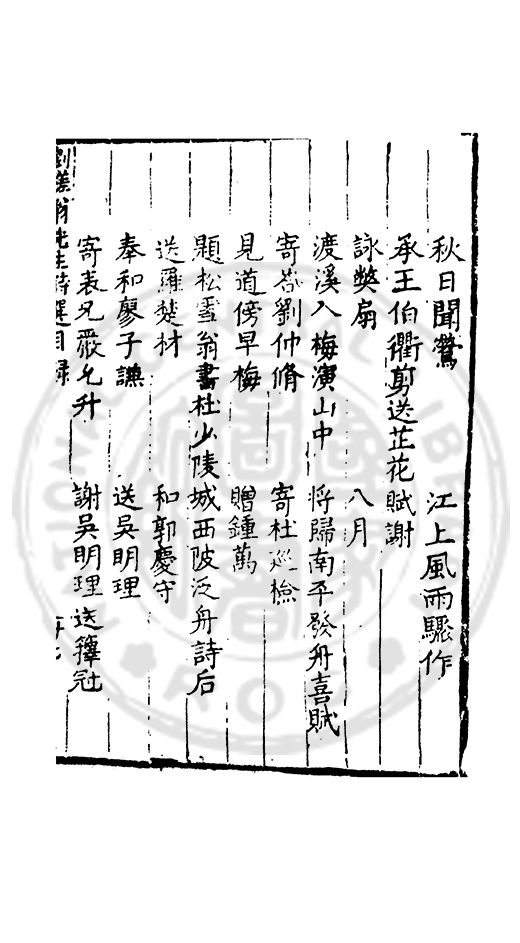 秋日聞鶯 江上風雨驟作
承王伯衢剪送芷花賦謝
詠獘扇 八月
渡溪入梅濱山中 将歸南平發舟喜賦
寄劉仲脩 寄杜巡檢
見道傍早梅 贈鍾萬
題松雪翁書杜少陵城西陂泛舟詩后
送羅楚材 和郭慶守
奉和廖子譓 送吳明理
寄表兄嚴允升 謝吳明理送籜冠
翁先生詩選目録